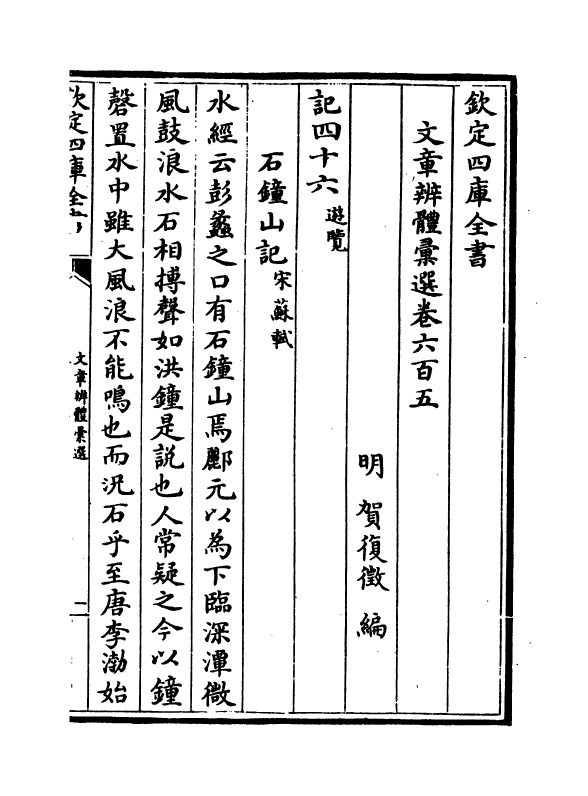 欽定四庫全書
文章辨體彚選卷六百五
明 賀復徵 編
記四十六 遊覽
石鐘山記 宋蘇軾
水經云彭蠡之口有石鐘山焉酈元以為下臨深潭微
風鼓浪水石相搏聲如洪鐘是説也人常疑之今以鐘
磬置水中雖大風浪不能鳴也而況石乎至唐李渤始
欽定四庫全書
文章辨體彚選
二